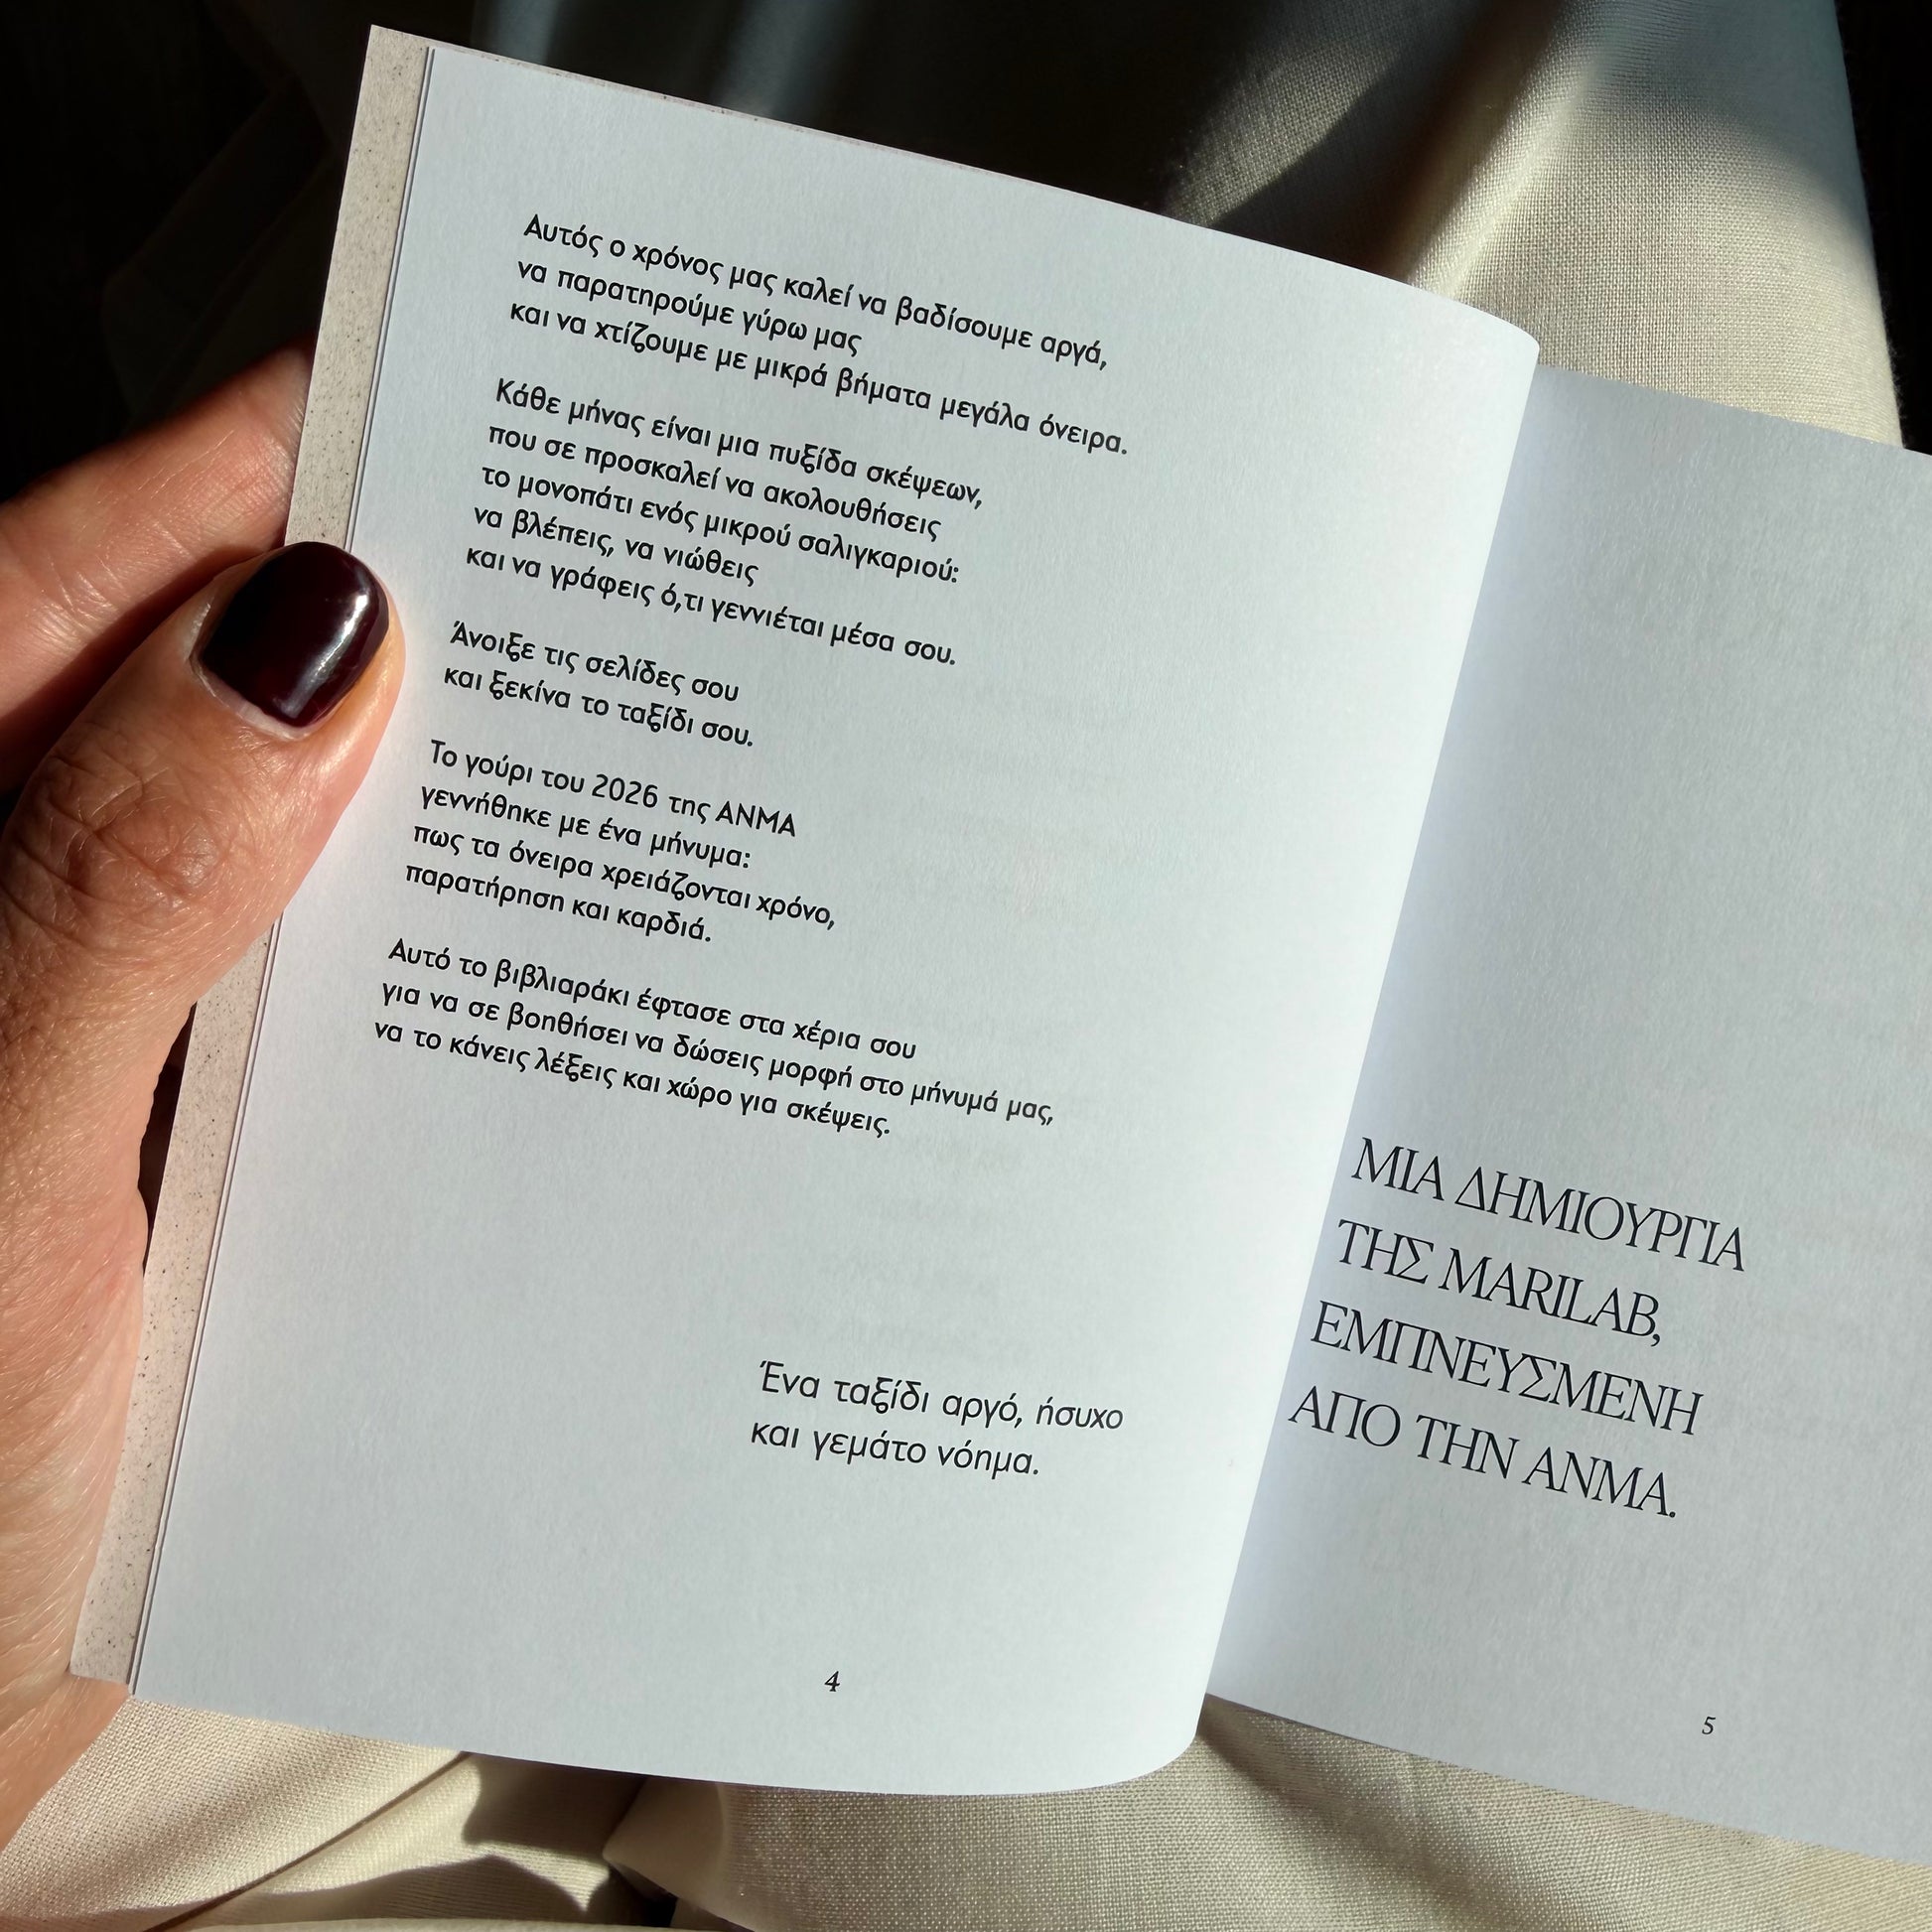 Αυτός ο χρόνος μας καλεί να βαδίσουμε αργά,
να παρατηρούμε γύρω μας
και να χτίζουμε με μικρά βήματα μεγάλα όνειρα.
Κάθε μήνας είναι μια πυξίδα σκέψεων,
που σε προσκαλεί να ακολουθήσεις
το μονοπάτι ενός μικρού σαλιγκαριού:
να βλέπεις, να νιώθεις
και να γράφεις ό,τι γεννιέται μέσα σου.
Άνοιξε τις σελίδες σου
και ξεκίνα το ταξίδι σου.
Το γούρι του 2026 της ΑΝΜΑ
γεννήθηκε με ένα μήνυμα:
πως τα όνειρα χρειάζονται χρόνο,
παρατήρηση και καρδιά.
Αυτό το βιβλιαράκι έφτασε στα χέρια σου
για να σε βοηθήσει να δώσεις μορφή στο μήνυμά μας,
να το κάνεις λέξεις και χώρο για σκέψεις.
Ένα ταξίδι αργό, ήσυχο
και γεμάτο νόημα.
4
ΜΙΑ ΔΗΜΙΟΥΡΓΙΑ
ΤΗΣ MARILAB,
ΕΜΠΝΕΥΣΜΕΝΗ
ΑΠΟ ΤΗΝ ΑΝΜΑ.
5